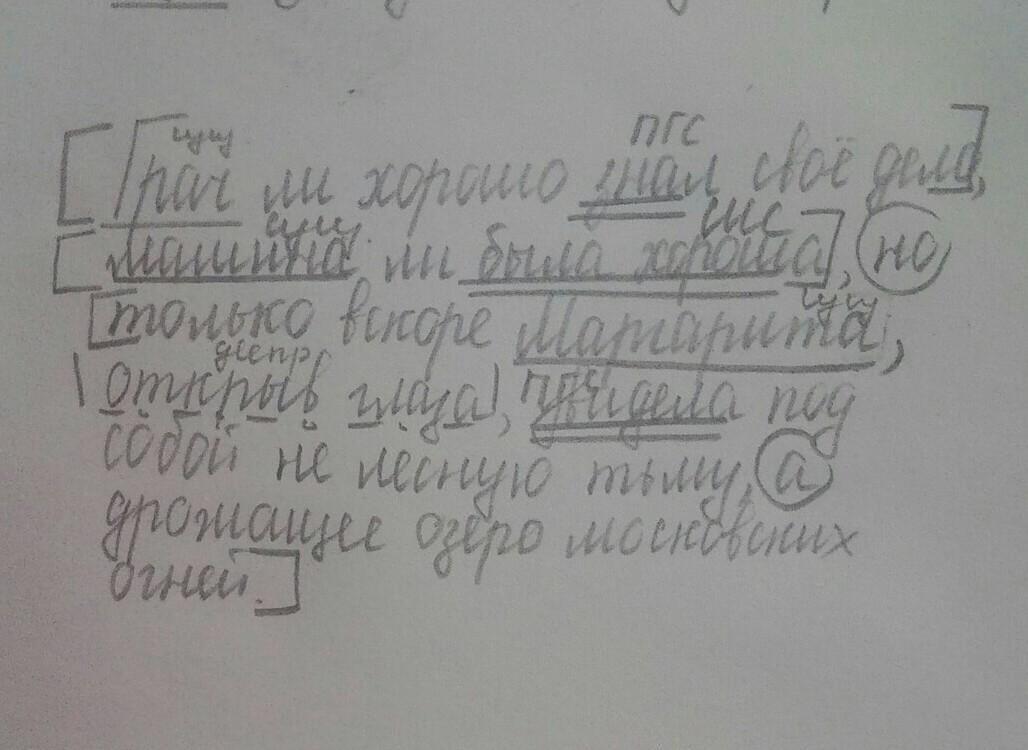 сущ ПГС
[Грач ли хорошо знал своё дело],
сущ СИС
[машина ли была хороша], но
сущ
[только вскоре Маргарита,
деепр ПГС
|открыв глаза|, увидела под
собой не лесную тьму, а
дрожащее озеро московских
огней.]